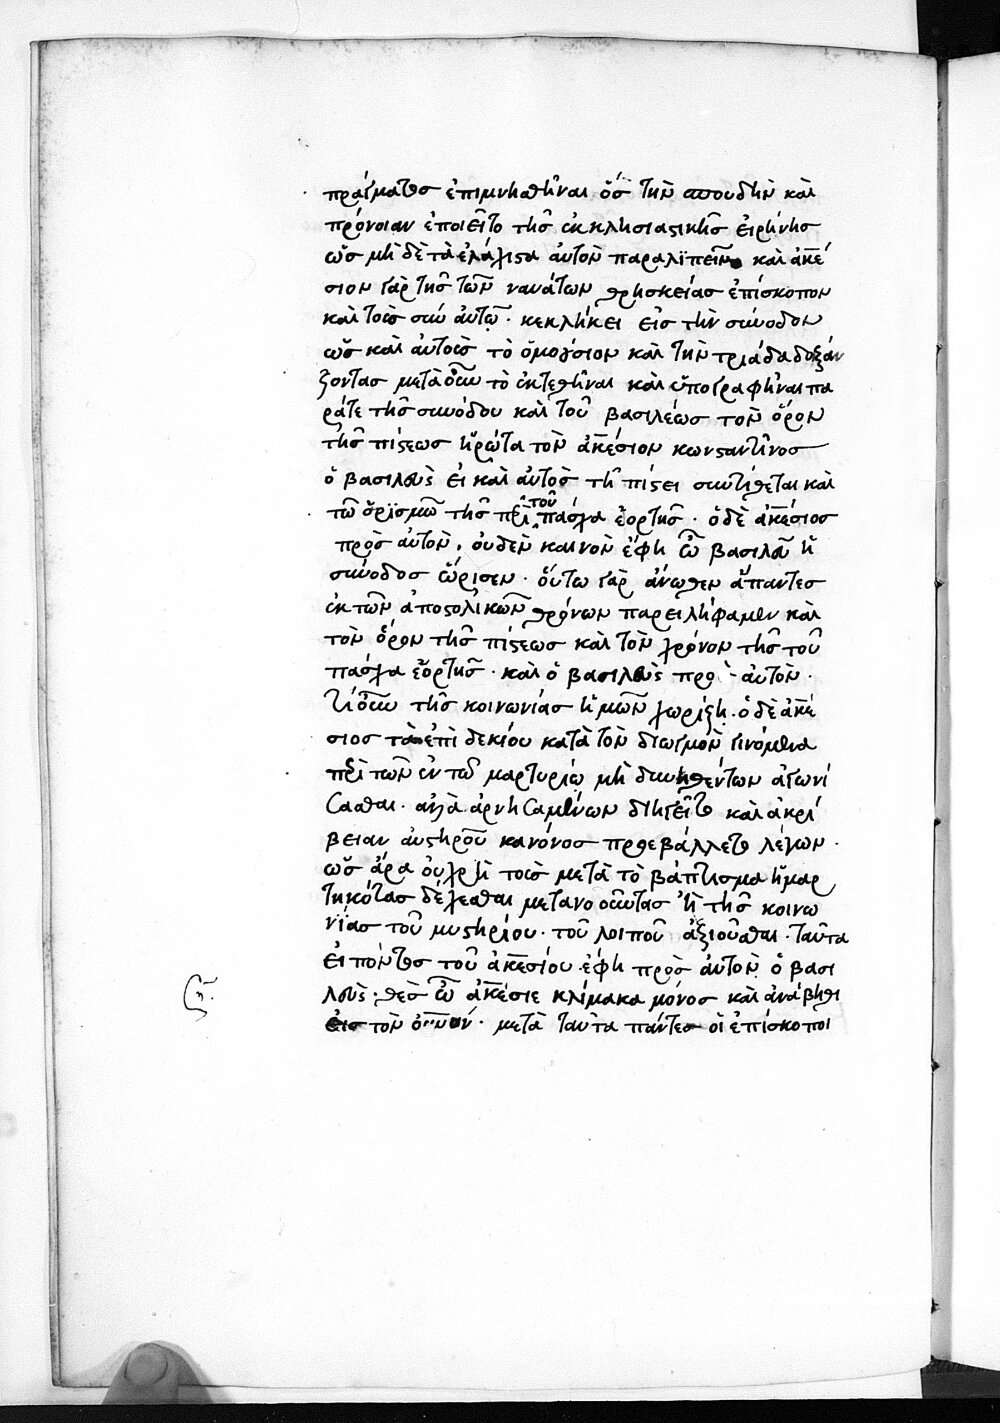 πράγματος ἐπιμνησθῆναι ὃς τὴν σπουδὴν καὶ
πρόνοιαν ἐποιεῖτο τῆς ἐκκλησιαστικῆς εἰρήνης
ὡς μὴ δὲ τὰ ἐλάχιστα αὐτὸν παραλιπεῖν καὶ ἀκέ
σιον γὰρ τῆς τῶν ναυάτων θρησκείας ἐπίσκοπον
καὶ τοῖς σὺν αὐτῷ· κεκλήκει εἰς τὴν σύνοδον
ὡς καὶ αὐτοῖς τὸ ὁμοούσιον καὶ τὴν τριάδα δοξάν
ζοντας μετὰ οὖν τὸ ἐκτεθῆναι καὶ ὑπογραφῆναι πα
ρά τε τῆς συνόδου καὶ τοῦ βασιλέως τὸν ὅρον
τῆς πίστεως ἠρώτα τὸν ἀκέσιον κωνσταντῖνος
ὁ βασιλεὺς εἰ καὶ αὐτὸς τῇ πίστει συντίθεται καὶ
τῷ ὁρισμῷ τῆς περὶ τοῦ πάσχα ἑορτῆς· ὁ δὲ ἀκέσιος
πρὸς αὐτὸν, οὐδὲν καινὸν ἔφη ὦ βασιλεῦ ἡ
σύνοδος ὥρισεν· οὕτω γὰρ ἄνωθεν ἅπαντες
ἐκ τῶν ἀποστολικῶν θρόνων παρειλήφαμεν καὶ
τὸν ὅρον τῆς πίστεως καὶ τὸν χρόνον τῆς τοῦ
πάσχα ἑορτῆς· καὶ ὁ βασιλεὺς προς αὐτὸν·
τί οὖν τῆς κοινωνίας ἡμῶν χωρίζῃ· ὁ δὲ ἀκέ
σιος τὰ ἐπὶ δεκίου κατὰ τὸν διωγμὸν γινόμενα
περὶ τῶν ἐν τῷ μαρτυρίῳ μὴ δυνηθέντων ἀγωνί
σασθαι· ἀλλὰ ἀρνησαμένων διηγεῖτο καὶ ἀκρί
βειαν αὐστηροῦ κανόνος προεβάλλετο λέγων·
ὡς ἄρα οὐ χρὴ τοῖς μετὰ τὸ βάπτισμα ἡμαρ
τηκότας δέχεσθαι μετανοοῦντας ἢ τῆς κοινω
νίας τοῦ μυστηρίου· τοῦ λοιποῦ ἀξιοῦσθαι· ταῦτα
εἰπόντος τοῦ ἀκεσίου ἔφη πρὸς αὐτὸν ὁ βασι
λεὺς· θὲς ὦ ἀκέσιε κλίμακα μόνος καὶ ἀνάβηθι
εἰς τὸν οὐνόν· μετὰ ταῦτα πάντες οἱ ἐπίσκοποι